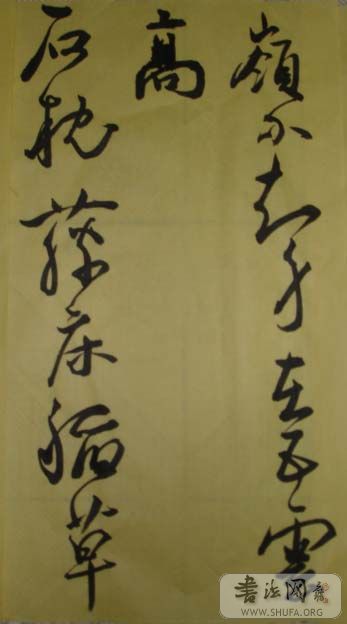 嶺不知身在五雲
高
石枕藤床稻草
書法网
WWW.SHUFA.ORG